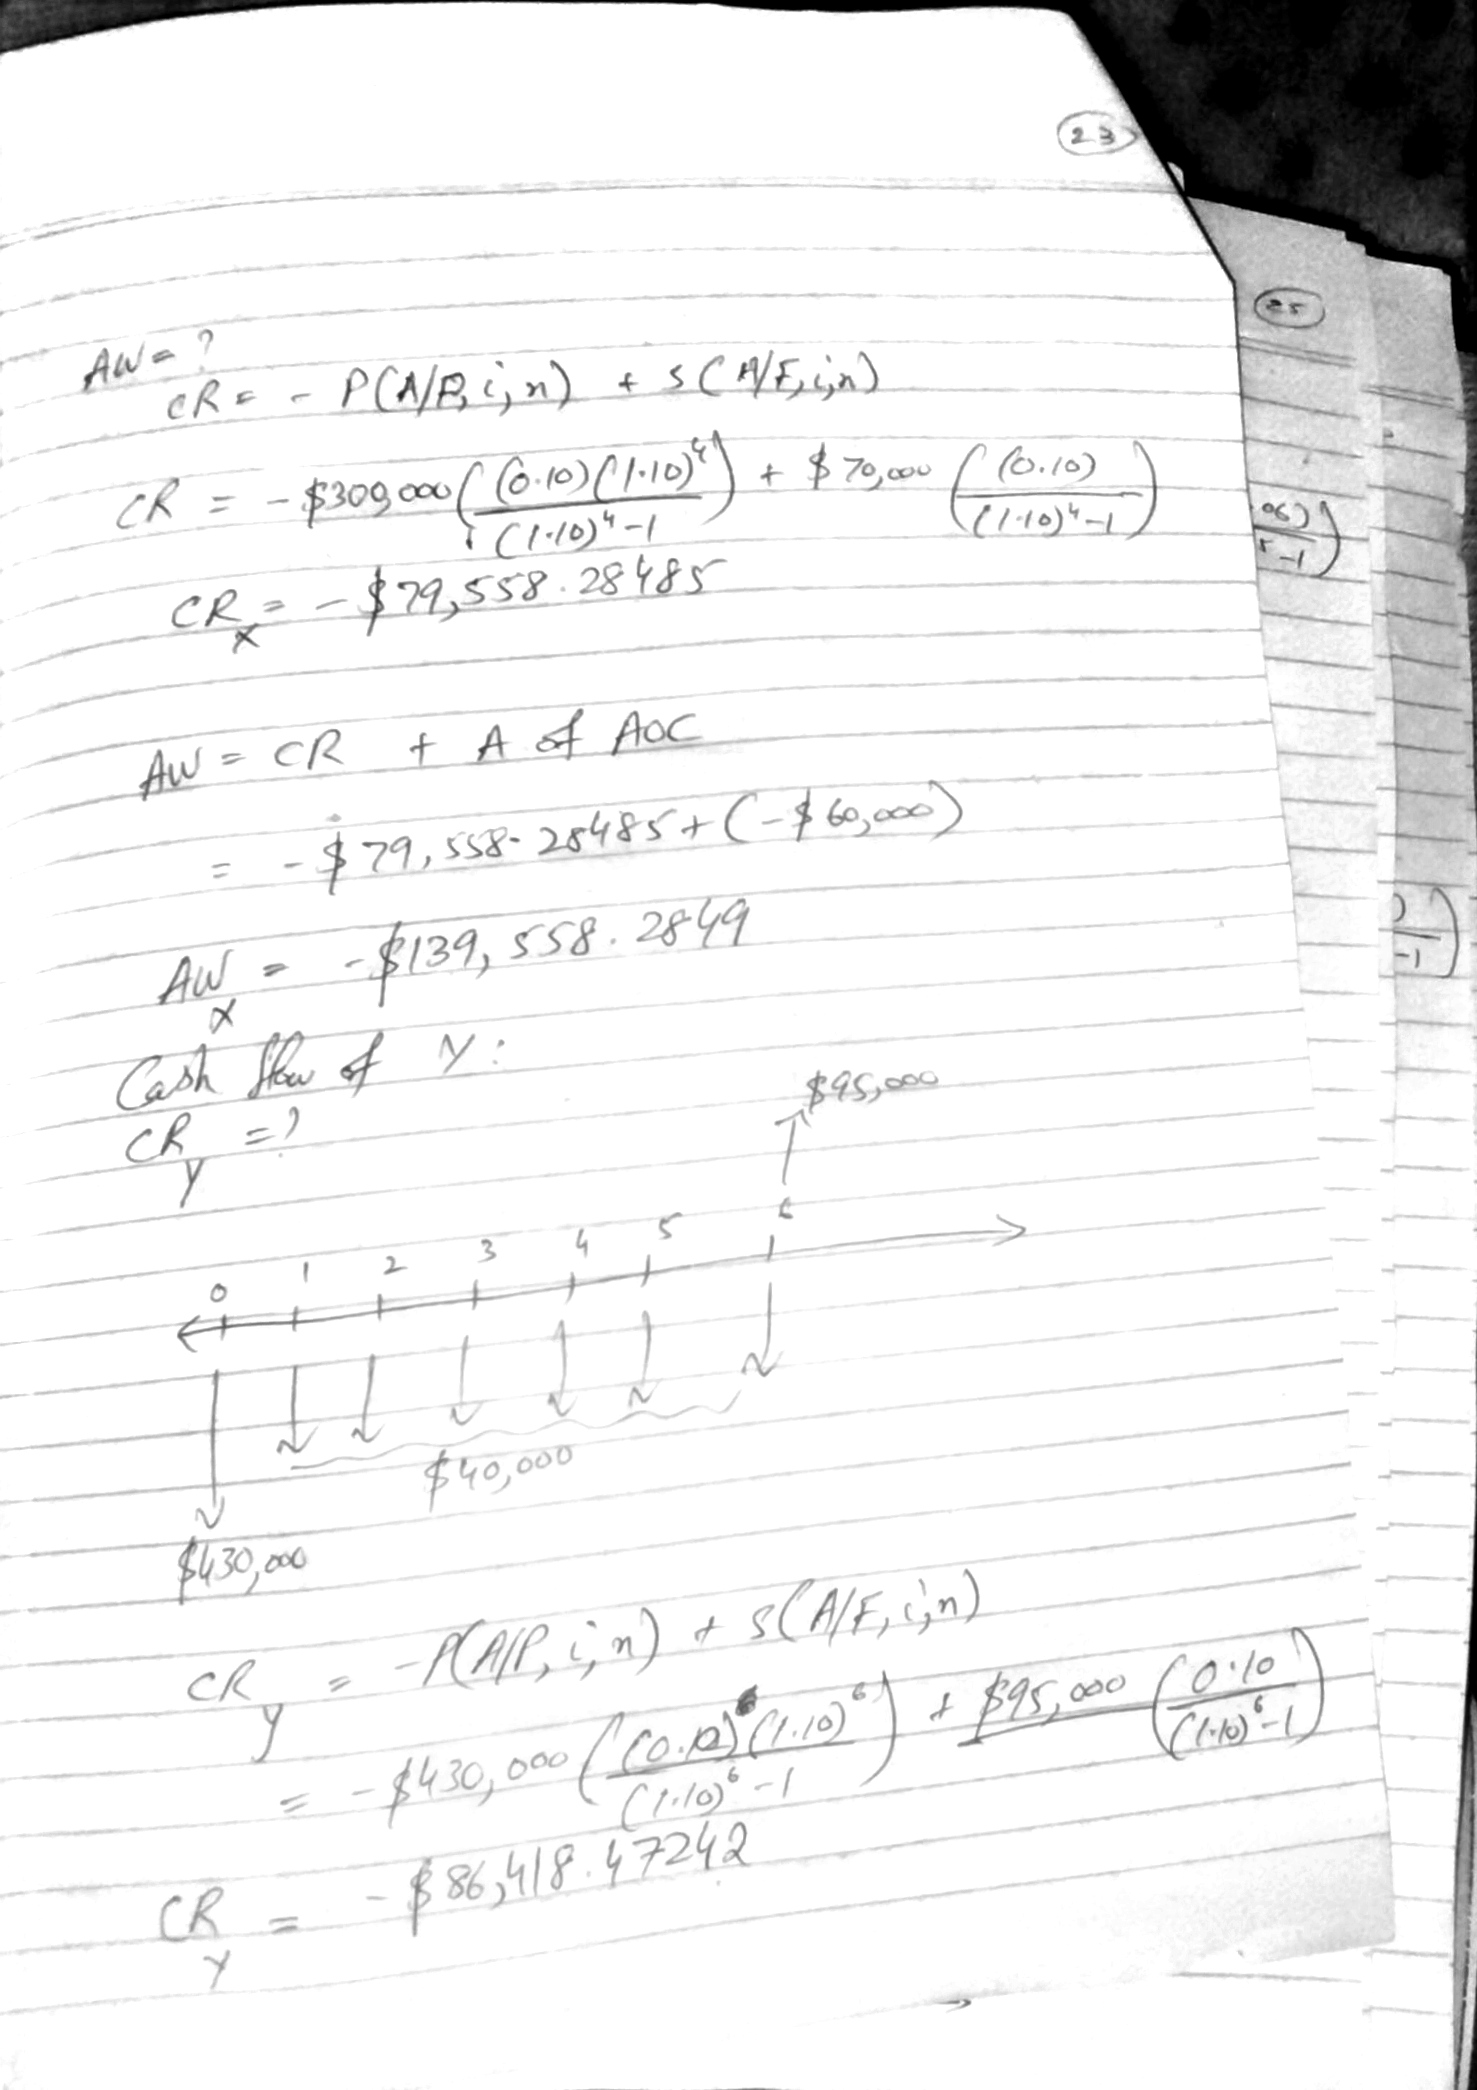 23
AW = ?
CR = - P(A/P, i, n) + S(A/F, i, n)
CR = - $300,000 ( (0.10)(1.10)^4 / (1.10)^4 - 1 ) + $70,000 ( (0.10) / (1.10)^4 - 1 )
CR_x = - $79,558.28485
AW = CR + A of AOC
= - $79,558.28485 + (- $60,000)
AW_x = - $139,558.2849
Cash flow of Y:
CR_y = ?
$95,000
0 1 2 3 4 5 6
$40,000
$430,000
CR_y = - P(A/P, i, n) + S(A/F, i, n)
= - $430,000 ( (0.10)(1.10)^6 / (1.10)^6 - 1 ) + $95,000 ( 0.10 / (1.10)^6 - 1 )
CR_y = - $86,418.47242
25
.06)
5 - 1 )
)
-1 )